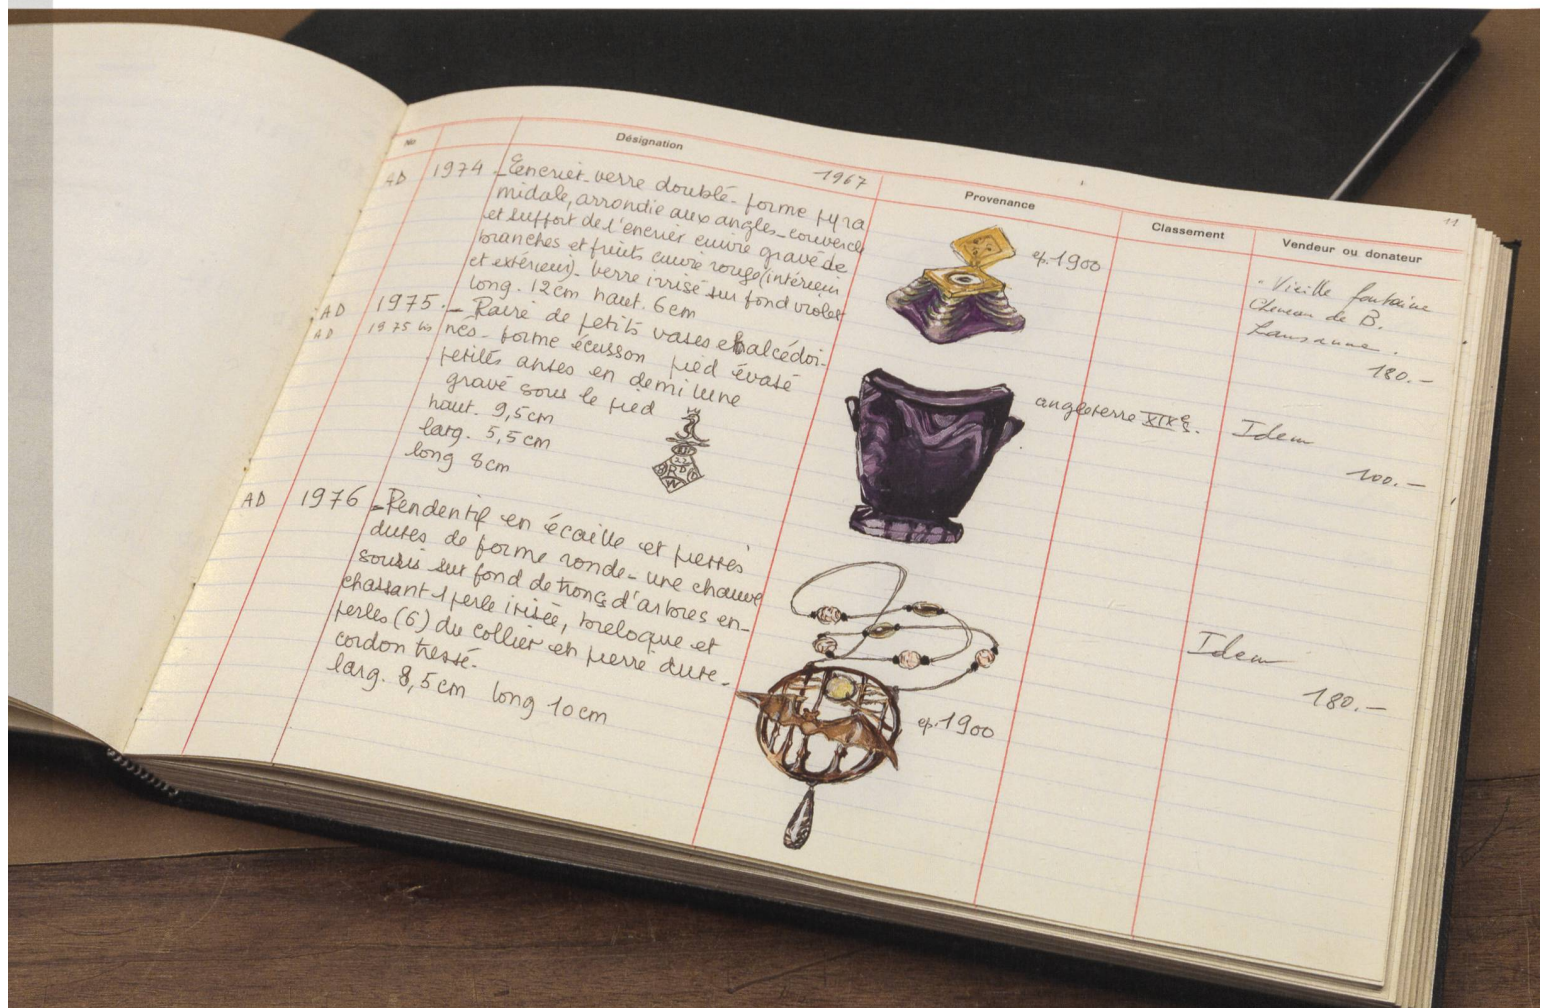 No
Désignation
Provenance
Classement
Vendeur ou donateur
11
1967
AD 1974. Encrier verre doublé - forme pyra
midale, arrondie aux angles - couvercle
et support de l'encrier cuivre gravé de
branches et fruits cuivre rouge (intérieur
et extérieur). Verre irrisé sur fond violet
long. 12cm haut. 6cm
ep. 1900
- Vieille fontaine
Cheneau de B.
Lausanne.
180.-
AD 1975. - Paire de petits vases chalcédoi-
AD 1975 bis nés. forme écusson pied évasé
petites anses en demi lune
gravé sous le pied
haut. 9,5cm
larg. 5,5cm
long 8cm
angleterre XIXe s.
Idem
100.-
AD 1976 - Pendentif en écaille et pierres
dures de forme ronde - une chauve
souris sur fond de troncs d'arbres en-
chassant 1 perle irisée, breloque et
perles (6) du collier en pierre dure -
cordon tressé.
larg. 8,5cm long 10cm
ep. 1900
Idem
180.-